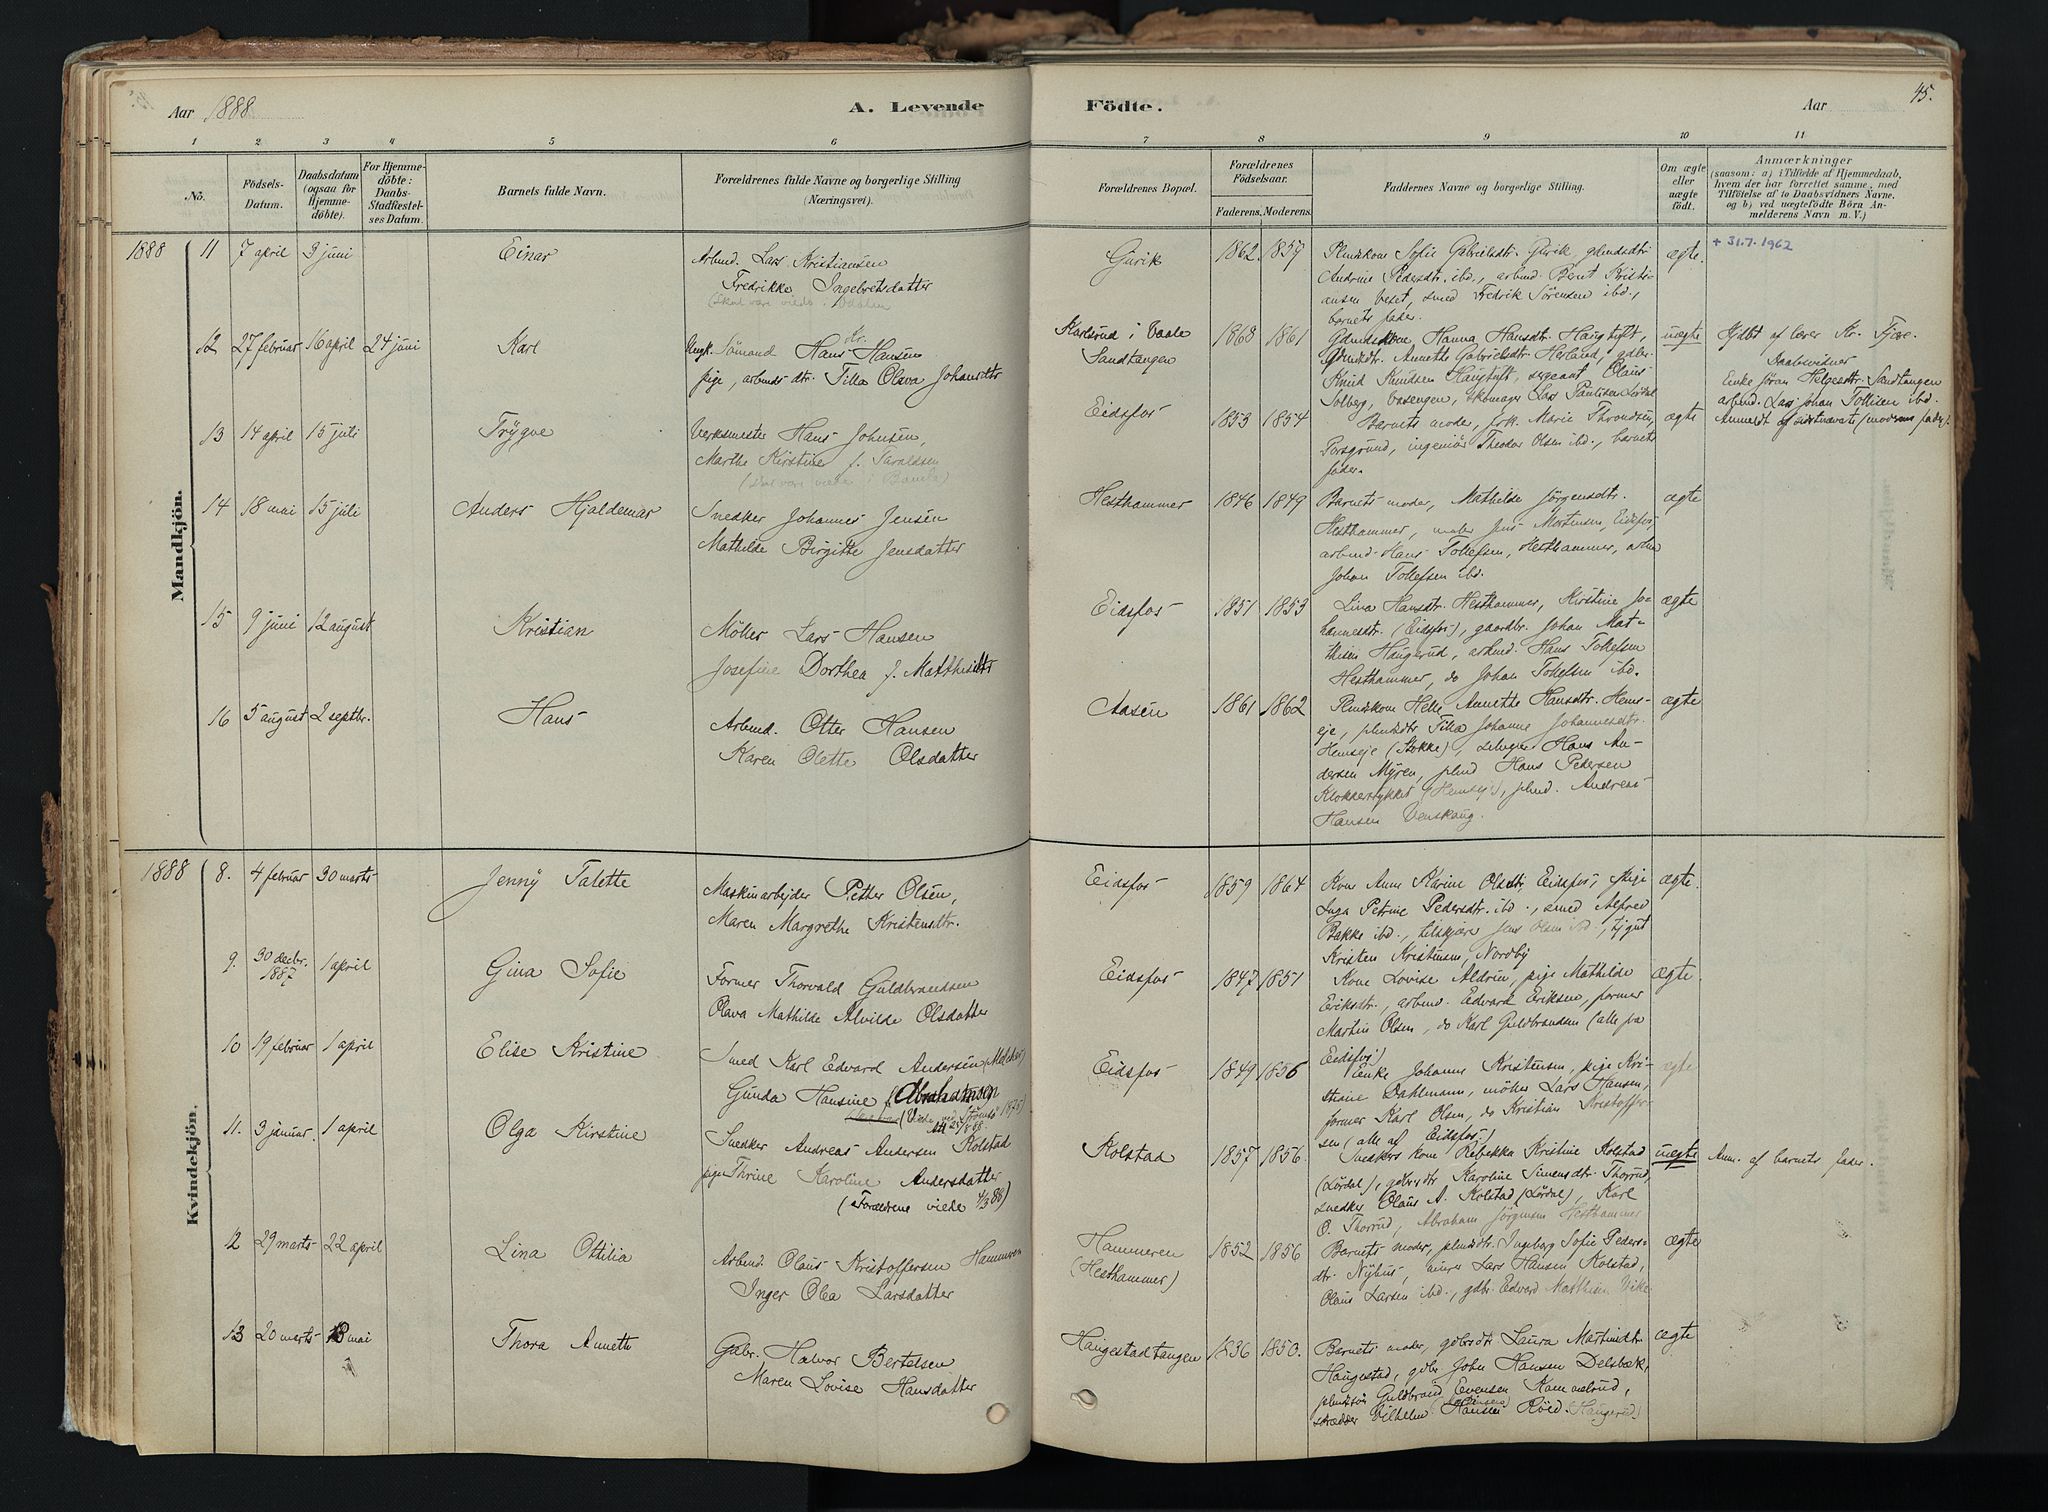 Aar 1888
A. Levende
Födte.
Aar
45.
1 2 3 4 5 6 7 8 9 10 11
No.
Födsels-Datum.
Daabsdatum (ogsaa for Hjemmedöbte).
For Hjemmedöbte: Daabs-Stadfestelses Datum.
Barnets fulde Navn.
Forældrenes fulde Navne og borgerlige Stilling (Næringsvei).
Forældrenes Bopæl.
Forældrenes Födselsaar.
Faderens. Moderens.
Faddernes Navne og borgerlige Stilling.
Om ægte eller uægte födt.
Anmærkninger
(saasom: a) i Tilfælde af Hjemmedaab, hvem der har forrettet samme, med Tilföielse af to Daabsvidners Navne, og b) ved uægtefödte Börn Anmelderens Navn m. V.)
Mandkjön.
1888 11 7 april 3 juni Einar
Arbmd. Lars Kristiansen
Fredrikke Ingebretsdatter
(skal være viede i
Gurik 1862. 1859
Plmdskone Sofie Gabrielsdtr. Gurik, gbmdsdtr.
Andrine Pedersdtr. ibd., arbmd. Bernt Kristi-
ansen Veset, smed Fredrik Sørensen ibd.,
barnets fader.
ægte.
+ 31.7.1962
12 27 februar 16 april 24 juni Karl
Ungk. Sømand Hans Kr. Hansen
pige, arbmds dtr. Tilla Olava Johansdtr
Karlsrud i Vaale
Sandtangen
1868 1861
Gbmdskone, Hanna Hansdtr. Haugtuft,
Gbmdsdtr. Annette Gabrielsdtr. Hesland, gdbr.
Knud Knudsen Haugtuft, sergeant Olaus
Solberg, skomager Lars Paulsen Lørdal
uægte
Hjdbt af lærer Kr. Fjære.
Daabsvidner
Enke Jøran Helgesdtr. Sandtangen
arbmd. Lars Johan Tollisen ibd.
Anmeldt af sidstnævnte (moderens fader).
13 14 april 15 juli Trygve
Verksmester Hans Johnsen,
Marthe Kirstine f. Taraldsen
(skal være viede i Bamle)
Eidsfos 1853 1854
Barnets moder, frk. Marie Throndsen,
Porsgrund, ingeniør Theodor Olsen ibd., barnets
fader.
ægte
14 18 mai 15 juli Anders Hjaldemar
Snedker Johannes Jensen
Mathilde Birgitte Jensdatter
Hesthammer 1846 1849
Barnets moder, Mathilde Jørgensdtr.
Hesthammer, maler Jens Mortensen, Eidsfos,
arbmd. Hans Tollefsen, Hesthammer,
Johan Tollefsen ibd.
ægte
15 9 juni 12 august Kristian
Møller Lars Hansen
Josefine Dorthea f. Matthisdtr
Eidsfos 1851 1853
Lina Hansdtr. Hesthammer, Kirstine Jo-
hannesdtr. (Eidsfos), gaardbr. Johan Mat-
thisen Haugerud, arbmd. Hans Tollefsen
Hesthammer, do Johan Tollefsen ibd.
ægte
16 5 august 2 septbr. Hans
Arbmd. Otter Hansen
Karen Olette Olsdatter
Aasen 1861 1862
Plmdskone Helle Annette Hansdtr. Hems-
eje, plmdsdtr. Tilla Johanne Johannesdtr.
Hemseje (Stokke), selveier Hans An-
dersen Myren, plmd Hans Pedersen
Klokkerstykket (Hemsej), plmd. Andreas
Hansen Venskaug.
ægte
Kvindekjön.
1888 8. 4 februar 30 marts Jenny Talette
Maskinarbejder Petter Olsen,
Maren Margrethe Kristensdtr.
Eidsfos 1859 1864
Kone Anne Karine Olsdtr. Eidsfos, pige
Inga Petrine Pedersdtr. ibd., smed Alfred
Bakke ibd., tilskjærer Jens Olsen ibd.,
Kristen Kristensen, Nordby
ægte.
9. 30 decbr. 1887 1 april Gina Sofie
Former Thorvald Guldbrandsen
Olava Mathilde Alvilde Olsdatter
Eidsfos 1847 1851
Kone Lovise Aldrin, pige Mathilde
Eriksdtr., arbmd. Edvard Eriksen, former
Martin Olsen, do Karl Guldbrandsen (alle fra
Eidsfos)
ægte.
10 19 februar 1 april Elise Kristine
Smed Karl Edvard Andersen (Melchior)
Gunda Hansine f. Abrahamsen
(viede ved Strømsø 1875)
Eidsfos 1849 1856
Enke Johanne Kristensen, pige Kri-
stiane Dahlmann, møller Lars Hansen,
former Karl Olsen, do Kristian Kristoffer-
sen (alle af Eidsfos.)
ægte
11. 3 januar. 1 april Olga Kirstine
Snedker Andreas Andersen Kolstad
pige Thrine Karoline Andersdatter
(Forældrene viede 4/3 88)
Kolstad 1857 1856.
Snedkers kone Rebekka Kristine Kolstad
(Lørdal), gdbrsdtr. Karoline Simensdtr. Thorrud,
snedker Olaus A. Kolstad (Lørdal), Karl
O. Thorrud, Abraham Jørgensen Hesthammer
uægte
Anm. af barnets fader.
12 29 marts 22 april Lina Ottilia
Arbmd. Olaus Kristoffersen Hammeren
Inger Olea Larsdatter
Hammeren
(Hesthammer)
1852 1856
Barnets moder, plmdsdtr. Ingeborg Sofie Peders-
dtr. Nybus, murer Lars Hansen Kolstad,
Olaus Larsen ibd., gdbr. Edvard Matthisen Vike.
ægte
13 20 marts 13 mai Thora Annette
Gdbr. Halvor Bertelsen
Maren Lovise Hansdatter
Haugestadtangen 1836 1850.
Barnets moder, gdbrsdtr. Laura Martinsdtr.
Haugestad, gdbr. John Hansen Delsbæk,
plmdssøn Guldbrand Evensen Kammelrud,
skrædder Vilhelm Hansen Röed (Haugerud.)
ægte